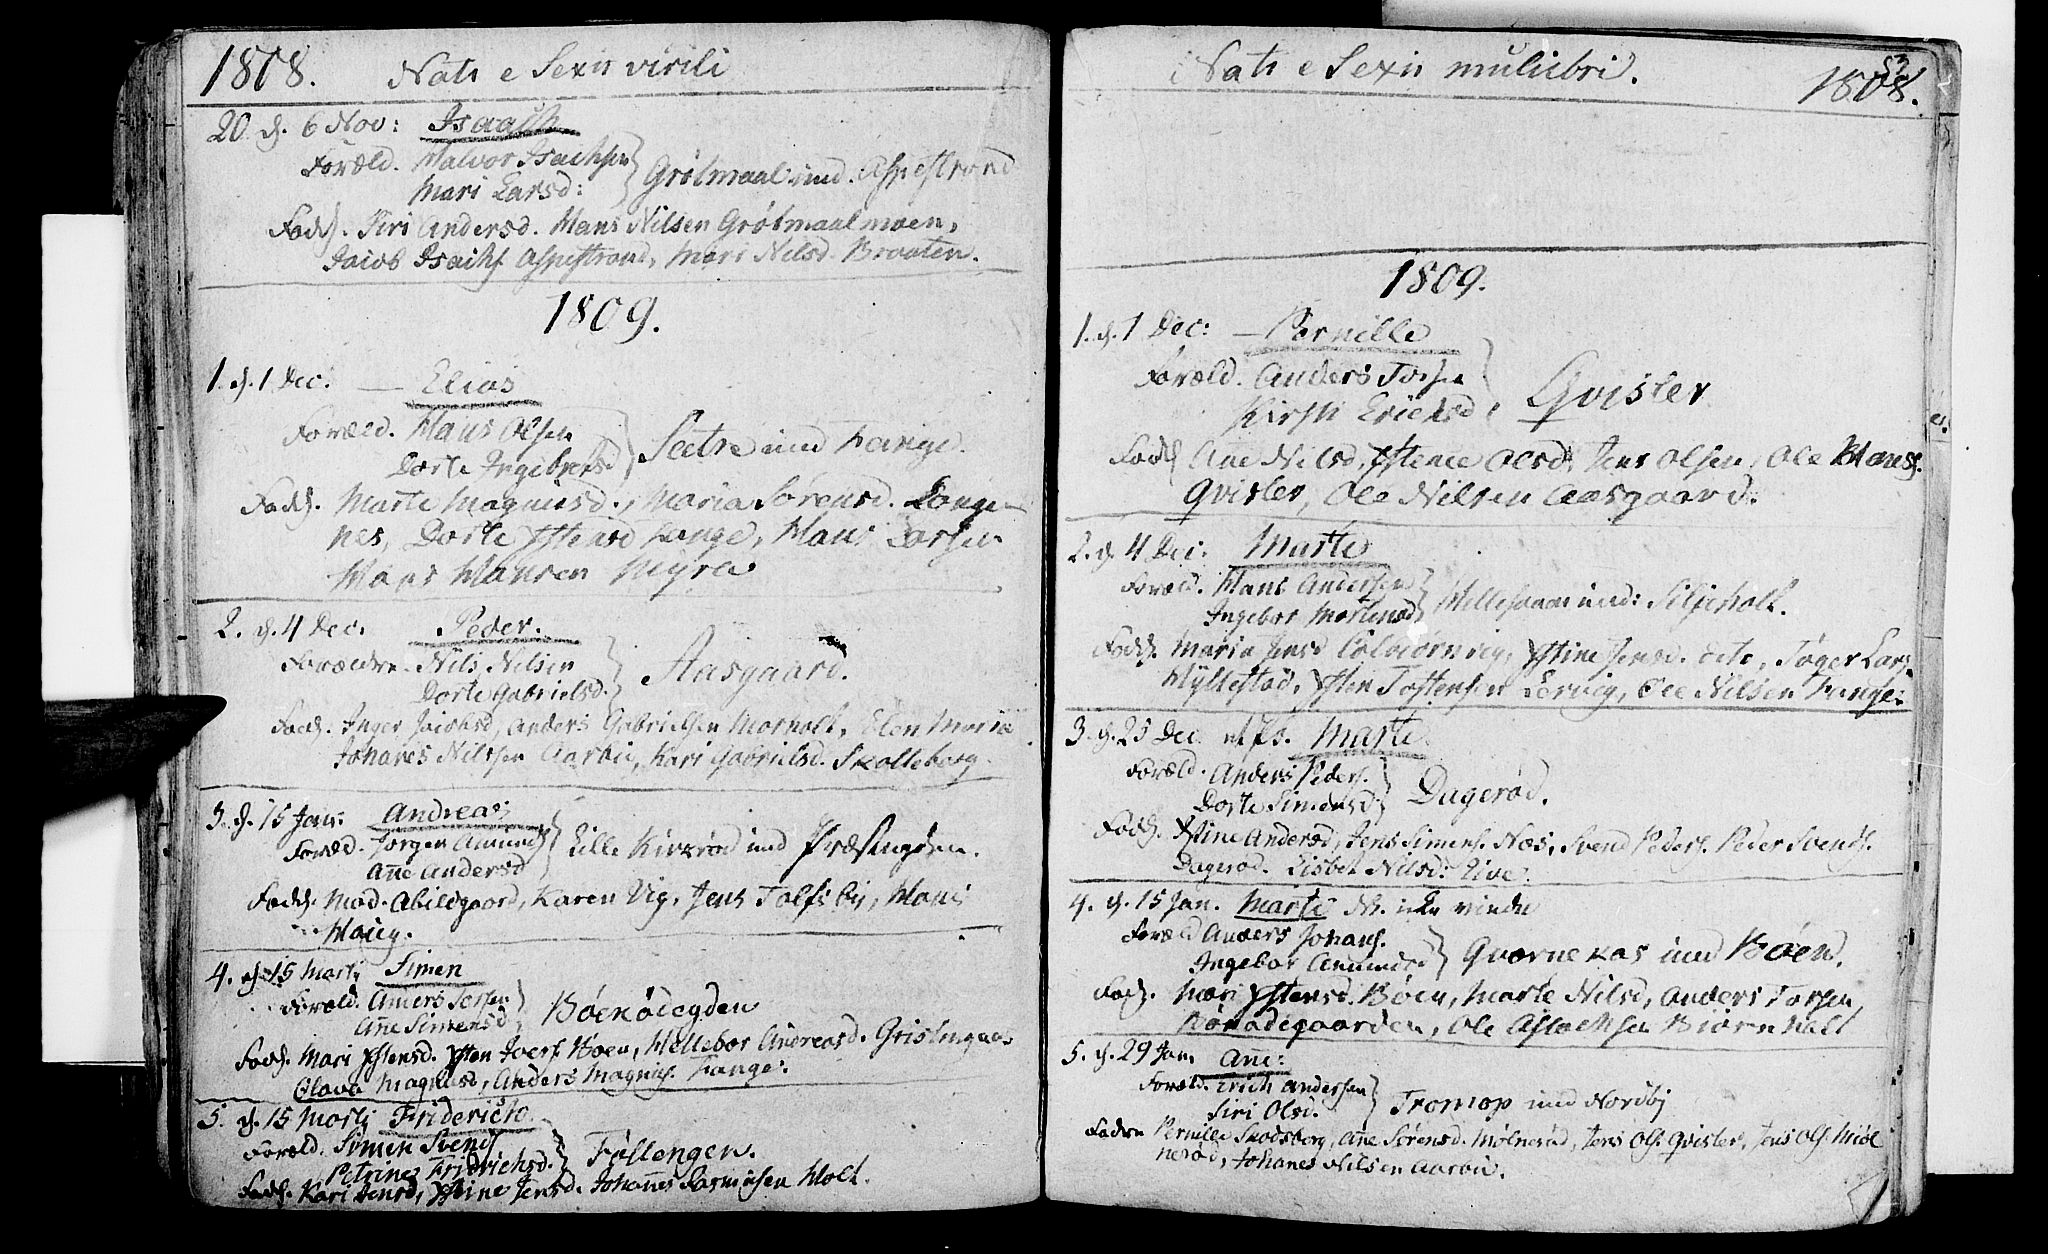 1808. Nati e Sexu virili
20. d. 6 Nov: Isaach
Foræld. Halvor Isachsen
Mari Larsd: Grølmaal und. Aspestrand
Fadd. Siri Andersd. Hans Nilsen Grølmaalmoen,
Jacob Isachs. Aspestrand, Mari Nilsd. Braaten.
1809.
1. d. 1 Dec. — Elias
Foræld. Hans Olsen
Dorte Ingebretsd Seetre und Lange.
Fadd. Marte Magnusd., Maria Sørensd. Lange
nes, Dorte Stensd Lange, Hans Larsen
Hans Hansen Myra
2. d. 4 Dec. Peder.
Forældre. Nils Nilsen
Dorte Gabrielsd. Aasgaard.
Fadd. Inger Jacobsd, Anders Gabrielsen Morholt, Elen Maria
Johanes Nilssen Aarbu, Kari Gabrielsd. Skolleborg.
3. d. 15 Jan: Andreas
Foræld. Jørgen Amunds
Añe Andersd Lille Kirkrød und Præstegden.
Fadd. Mad. Abildgaard, Karen Vig, Jens Tolfsby, Hans
4. d. 15 Marti Simen
Foræld. Anders
Añe Simensd Bøeødegden
Fadd. Mari Stensd. Sten Boen, Hellebor Andreasd.
Olava Magnusd, Anders Magnus. Lange.
5. d. 15 Marti Friderich
Foræld. Simen Svends
Petrine Fridrichsd. Føllengen.
Fadd. Kari Jensd, Stine Jensd. Johañes Rasmusen Holt.
Nati e Sexu muliebri. 53
1808.
1809.
1. d. 1 Dec: — Pernille
Foræld. Anders Torsen
Kirsti Erichsd. Qvisler
Fadd Añe Nilsd, Stence Olsd, Jens Olsen, Ole Hans.
Qvisler, Ole Nilsen Aasgaard.
2. d. 4 Dec. Marte
Foræld. Hans Andersen
Ingebor Mortensd Hellesaaen und: Siljeholt.
Fadd. Maria Jensd Colbiørnvig, Stine Jensd. dito, Tøger Lars.
Hyllestad, Sten Tostensen Lervig, Ole Nilsen Lange.
3. d. 25 Dec. Marte
Foræld. Anders Peders.
Dorte Simensd Dagerød.
Fadd. Stine Andersd, Jens Simens. Næs, Svend Peders. Peder Svends.
Dagerød. Lisbet Nilsd. Live.
4. d. 15 Jan. Marte
Foræld Anders Johans.
Ingebor Amundsd Qværnekas und Bøen.
Fadd. Mari Stensd. Bøen, Marte Nilsd, Anders Torsen,
Bøeødegaarden, Ole Aslachsen Biørnholt
5. d. 29 Jan. Añe:
Foræld. Erich Andersen
Siri Olsd. Tromop und Nordbÿ
Faddre Pernille Skodsberg, Añe Sørensd. Mølnerød, Jens Ols. Qvisler, Jens Ols. Møl
nerød, Johanes Nilsen Aarbu.